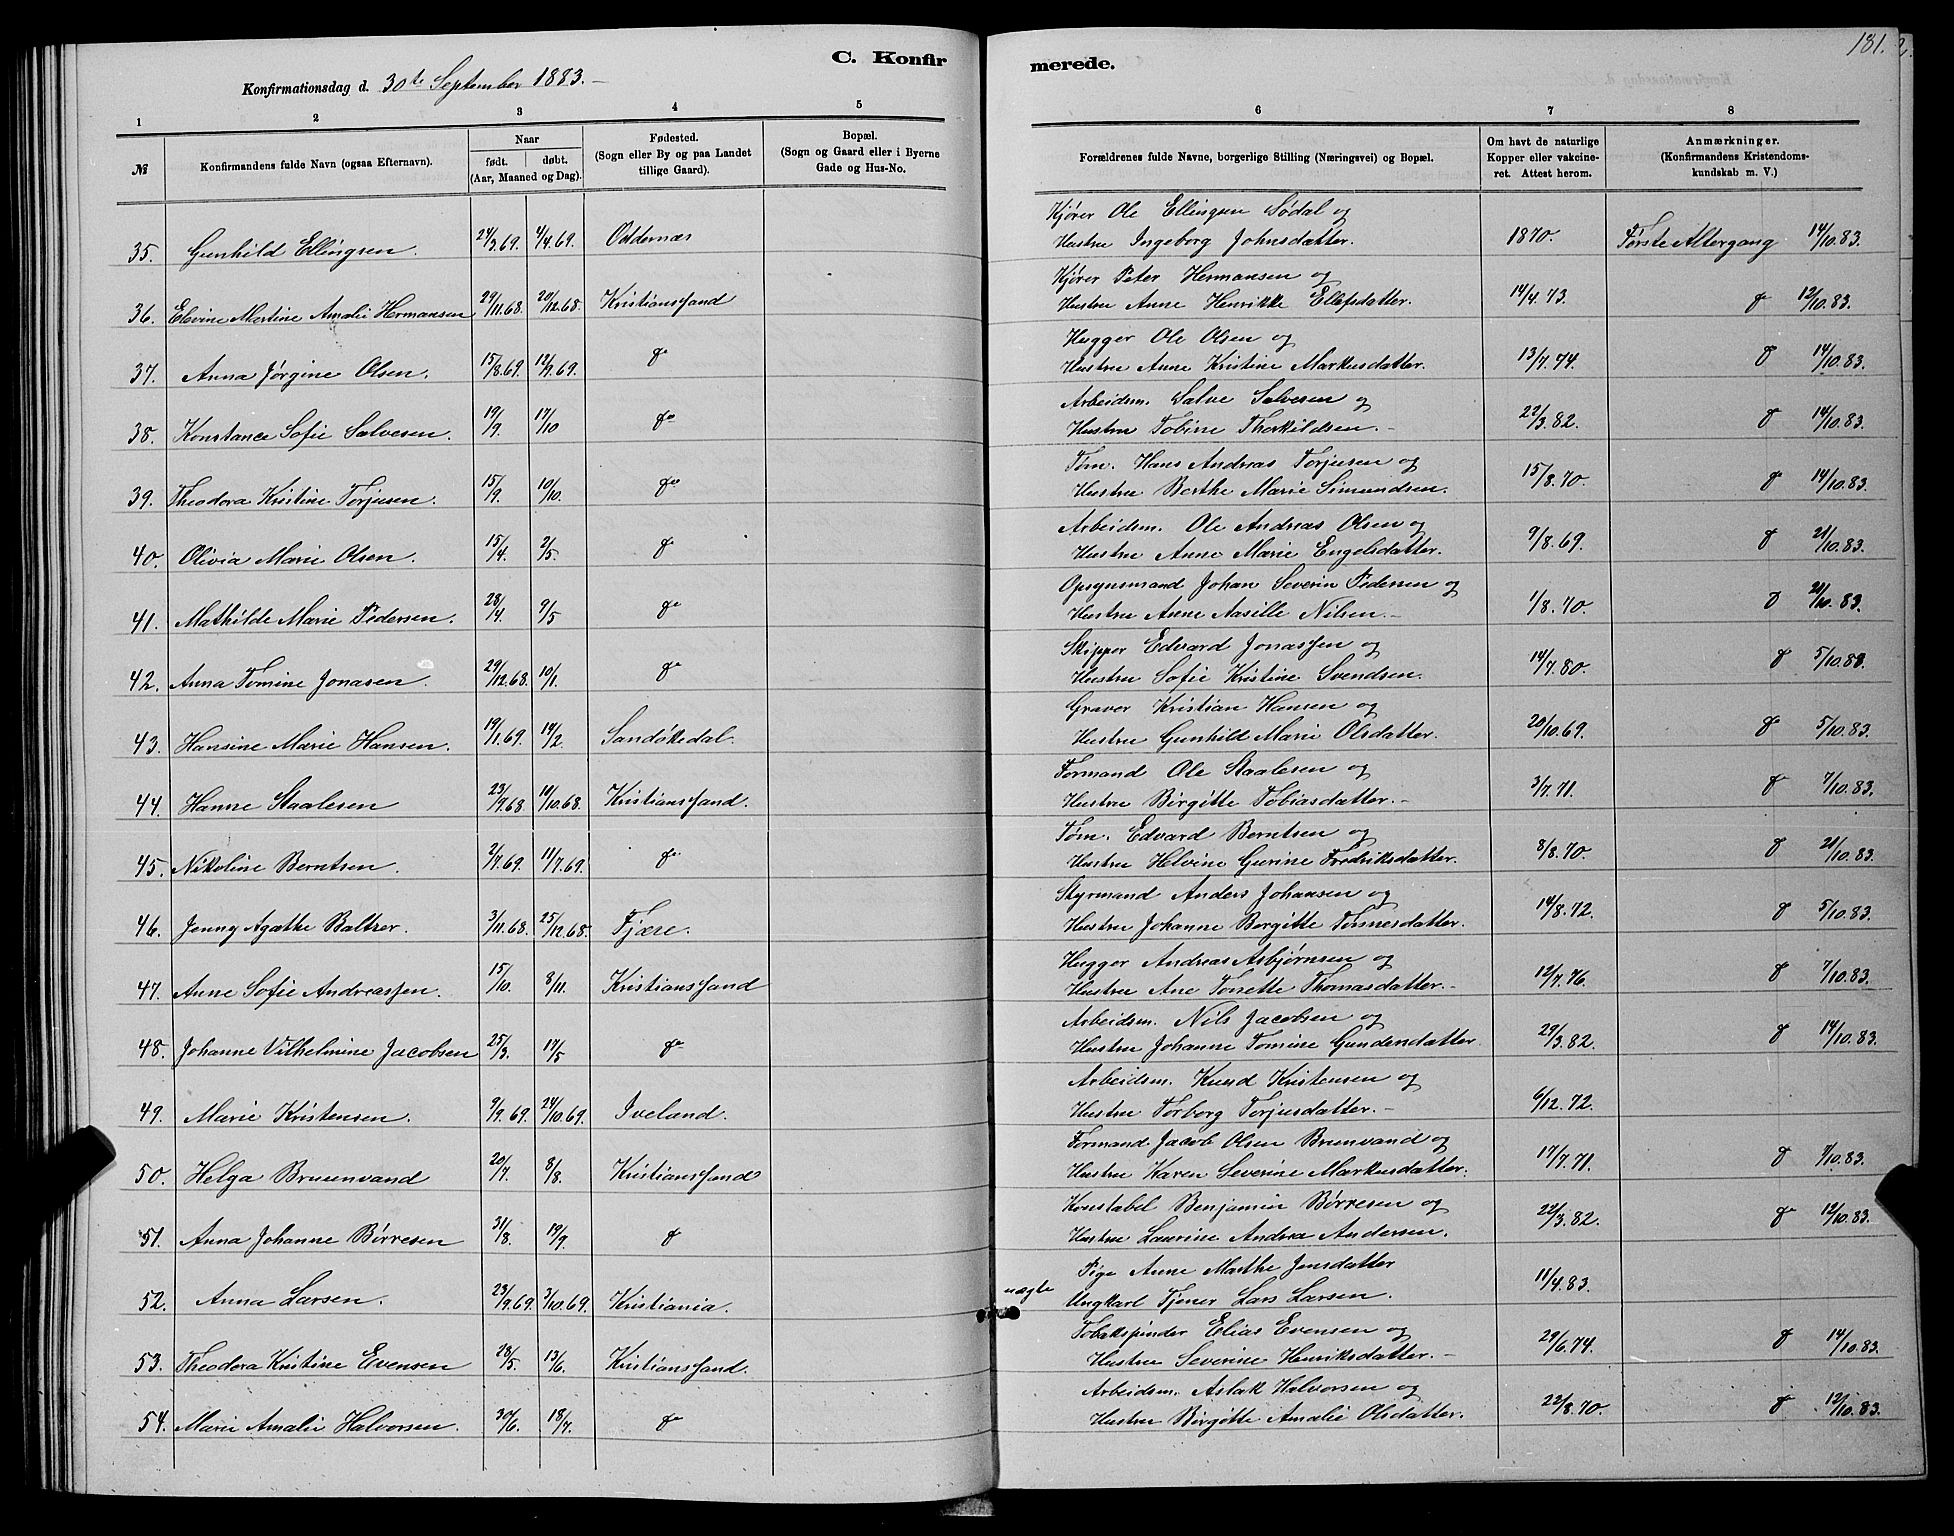 181.
C. Konfirmerede.
Konfirmationsdag d. 30te September 1883.-
1 2 3 4 5 6 7 8
№ Konfirmandens fulde Navn (ogsaa Efternavn). Naar født. døbt. (Aar, Maaned og Dag). Fødested. (Sogn eller By og paa Landet tillige Gaard). Bopæl. (Sogn og Gaard eller i Byerne Gade og Hus-No. Forældrenes fulde Navne, borgerlige Stilling (Næringsvei) og Bopæl. Om havt de naturlige Kopper eller vakcineret. Attest herom. Anmærkninger. (Konfirmandens Kristendomskundskab m. V.)
Kjører Ole Ellingsen Sødal og
35. Gunhild Ellingsen. 24/3.69. 4/4.69. Oddernæs Hustru Ingeborg Johnsdatter. 1870. Første Altergang 14/10.83.
Kjører Peter Hermansen og
36. Elvine Martine Amalie Hermansen 29/11.68. 20/12.68. Kristianssand Hustru Anne Henrikke Ellefsdatter. 14/4.73. do 12/10.83.
Hugger Ole Olsen og
37. Anna Jørgine Olsen. 15/8.69. 12/9.69. do Hustru Anne Kristine Markusdatter. 13/7.74. do 14/10.83.
Arbeidsm. Salve Salvesen og
38. Konstance Sofie Salvesen. 19/9. 17/10 do Hustru Tobine Thorkildsen.- 22/3.82. do 14/10.83.
Tøm. Hans Andreas Torjusen og
39. Theodora Kristine Torjusen. 15/9. 10/10. do Hustru Berthe Marie Simundsen. 15/8.70. do 14/10.83.
Arbeidsm. Ole Andreas Olsen og
40. Olivia Marie Olsen. 15/4. 2/5. do Hustru Anne Marie Engelsdatter. 9/8.69. do 21/10.83.
Opsynsmand Johan Severin Pedersen og
41. Mathilde Marie Pedersen. 28/4. 9/5 do Hustru Anne Aasille Nilsen.- 1/8.70. do 21/10.83.
Skipper Edvard Jonassen og
42. Anna Tomine Jonasen. 29/12.68. 10/1. do Hustru Sofie Kristine Svendsen. 14/7.80. do 5/10.83.
Graver Kristian Hansen og
43. Hansine Marie Hansen. 19/1.69. 14/2 Sandøkedal. Hustru Gunhild Marie Olsdatter. 20/10.69. do 5/10.83.
Formand Ole Staalesen og
44. Hanne Staalesen 23/9.68 10/10.68. Kristianssand. Hustru Birgitte Tobiasdatter.- 3/7.71. do 7/10.83.
Tøm. Edvard Berntsen og
45. Nikoline Berntsen. 2/7.69. 11/7.69. do Hustru Helvine Gurine Fredriksdatter. 8/8.70. do 21/10.83.
Styrmand Anders Johansen og
46. Jenny Agathe Baltzer. 3/11.68. 25/12.68. Fjære. Hustru Johanne Borgitte Tønnesdatter. 14/8.72. do 5/10.83.
Hugger Andreas Asbjørnsen og
47. Anne Sofie Andreassen. 15/10. 8/11. Kristianssand Hustru Ane Tonette Thomasdatter.- 12/7.76. do 7/10.83.
Arbeidsm. Nils Jacobsen og
48. Johanne Vilhelmine Jacobsen 25/3. 17/5 do Hustru Johanne Tomine Gundersdatter 29/3.82. do 14/10.83.
Arbeidsm. Knud Kristensen og
49. Marie Kristensen. 9/9.69. 24/10.69. Iveland. Hustru Torborg Torjusdatter.- 6/12.72.
Formand Jacob Olsen Brunvand og
50. Helga Bruunvand 20/7. 8/8. Kristianssand Hustru Karen Severine Markusdatter. 17/7.71. do 7/10.83.
Konstabel Benjamin Børresen og
51. Anna Johanne Børresen 31/8. 19/9. do Hustru Laurine Andrea Andersen. 22/3.82. do 12/10.83.
Pige Anne Marthe Jensdatter
52. Anna Larsen. 23/9.69. 3/10.69. Kristiania. uægte Ungkarl Tjener Lars Larsen. 11/4.83.
Tobakspinder Elias Evensen og
53. Theodora Kristine Evensen 28/5. 13/6. Kristianssand. Hustru Severine Henriksdatter.- 29/6.74. do 14/10.83.
Arbeidsm. Aslak Halvorsen og
54. Marie Amalie Halvorsen. 30/6. 18/7. do Hustru Birgitte Amalie Olsdatter. 22/8.70. do 12/10.83.